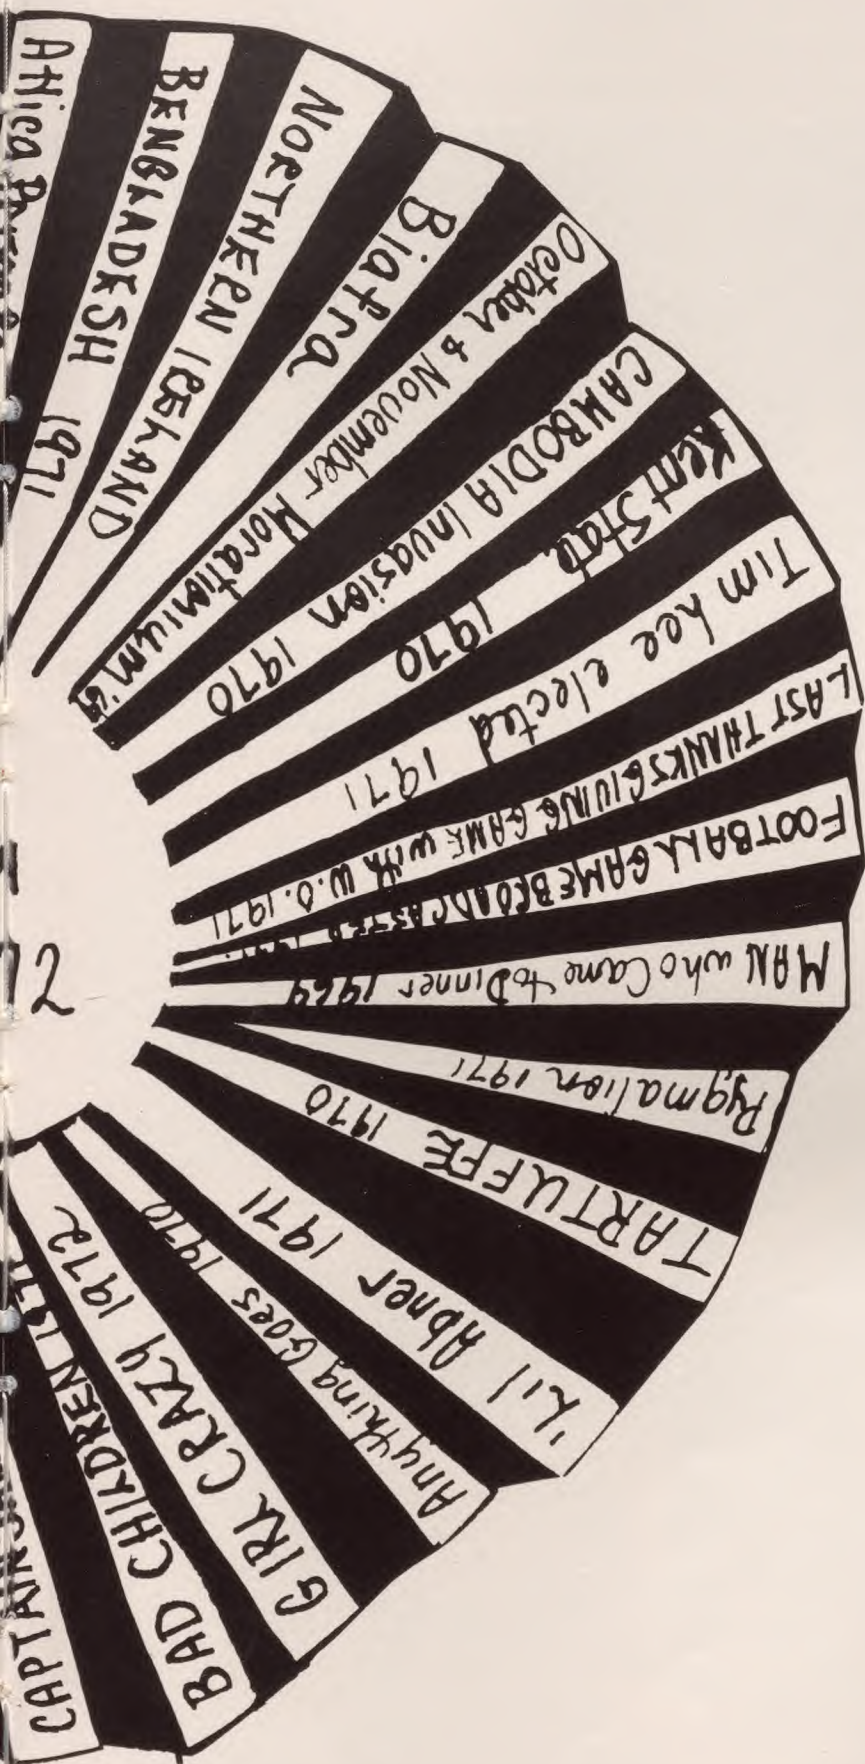 Attica
BENGLADESH 1971
NORTHERN IRELAND
Biafra
October & November Moratorium's
CAMBODIA Invasion 1970
Kent State 1970
Tim Lee elected 1971
LAST THANKSGIVING GAME with W.O. 1971
FOOTBALL GAME BROADCASTED
MAN who Came to Dinner 1969
Pygmalion 1971
TARTUFFE 1970
'Lil Abner 1971
Anything Goes 1970
GIRL CRAZY 1972
BAD CHILDREN 1971
72